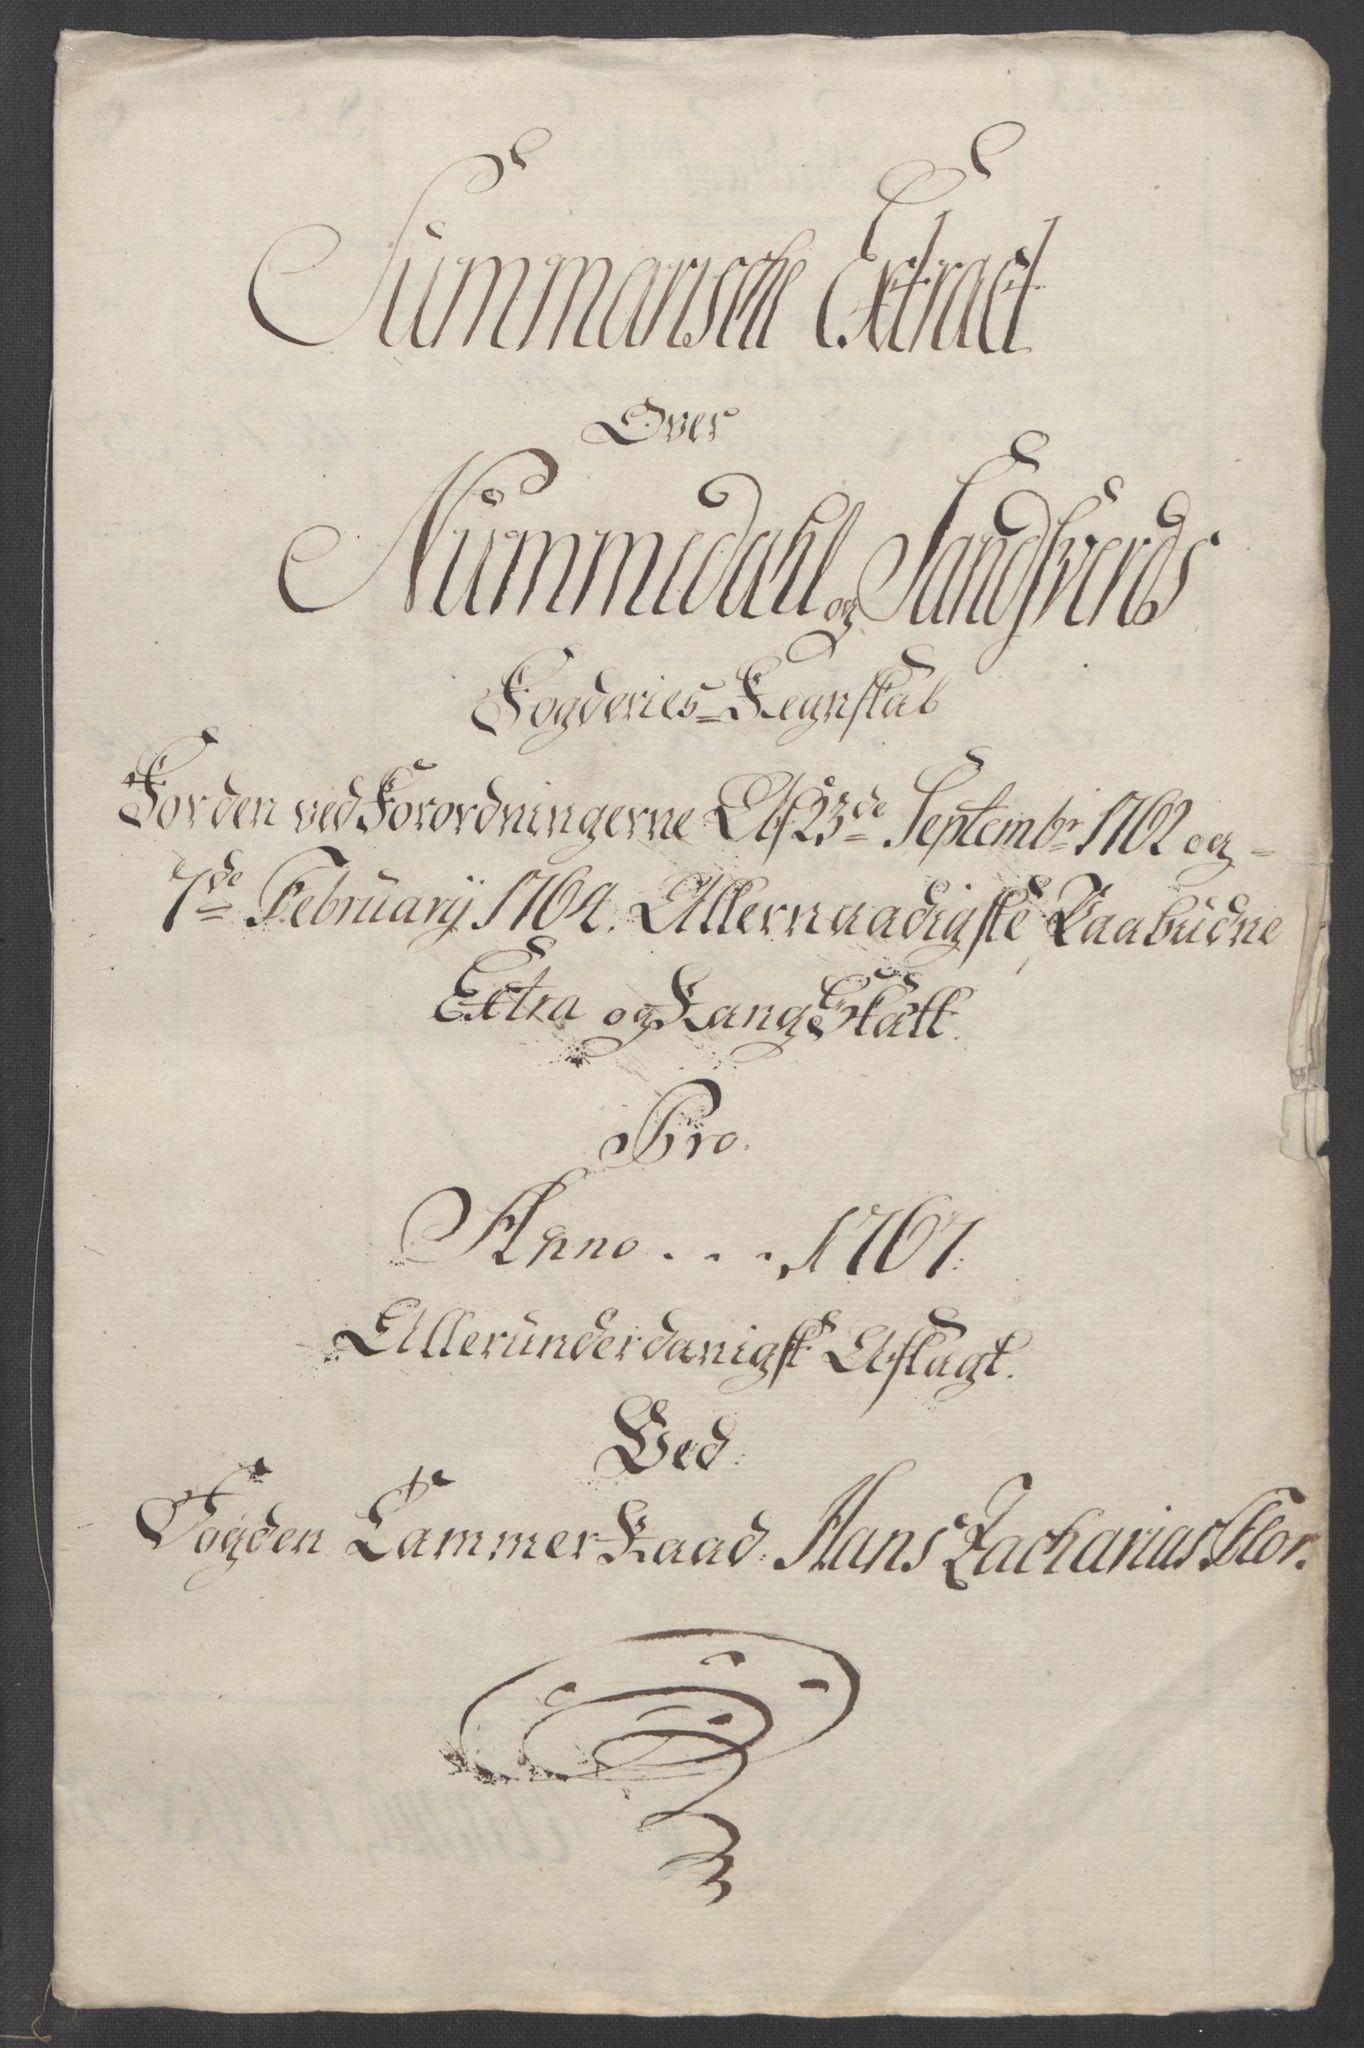 Summarische Extract
Over
Nummedahl og Sandsverds
Fogderies-Regnskab
For den ved Forordningerne Af 23de Septembr 1762 og -
7de February 1764. Allernaadigste Paabudne
Extra og Rang Skatt.
Pro.
Anno . . . 1767.
Allerunderdanigst Aflagt.
Ved.
Fogden Cammer Raad. Hans Zacharias Flor.